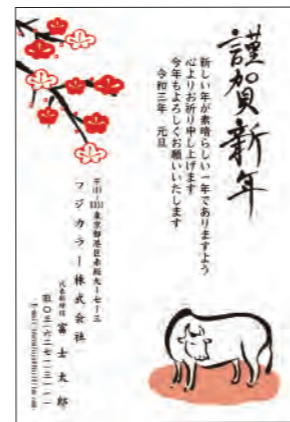 謹賀新年
新しい年が素晴らしい一年でありますよう
心よりお祈り申し上げます
今年もよろしくお願いいたします
令和三年 元旦
東京都港区赤坂九ー七ー三
フジカラー株式会社
富士太郎